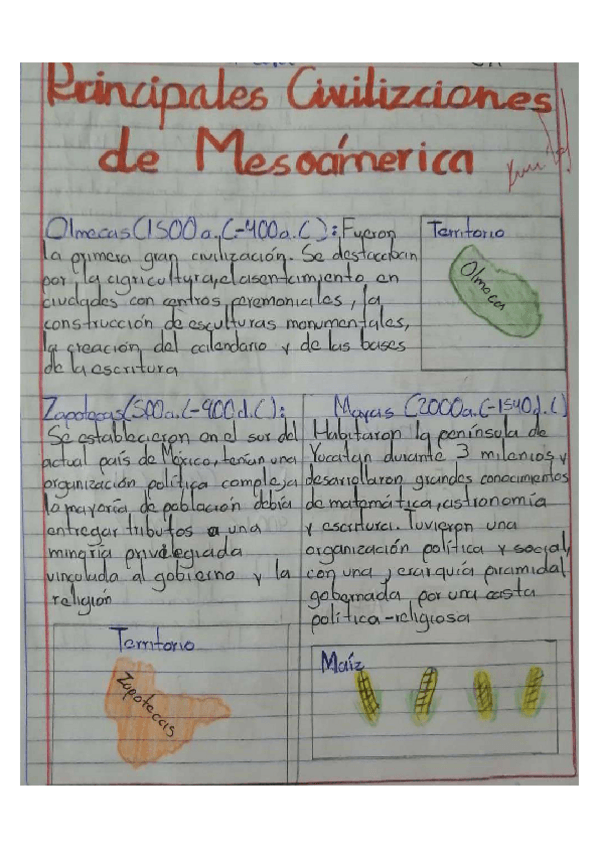 Principales Civilizciones
de Mesoámerica
Olmecas (1500 a.C-400a.C): Fueron
la primera gran civilización. Se destacaban
por la agricultura, el asentamiento en
ciudades con centros ceremoniales, la
construcción de esculturas monumentales,
la creación del calendario y de las bases
de la escritura
Territorio
Olmeca
Zapotecas (500a.C-900d.C):
Se establecieron en el sur del
actual país de México, tenían una
organización política compleja
la mayoría de población debía
entregar tributos a una
minoría privilegiada
vinculada al gobierno y la
religión
Territorio
Zapotecas
Mayas (2000a.C-1540d.C)
Habitaron la península de
Yucatán durante 3 milenios y
desarrollaron grandes conocimientos
de matemática, astronomía
y escritura. Tuvieron una
organización política y social,
con una jerarquía piramidal
gobernada por una casta
política-religiosa
Maíz